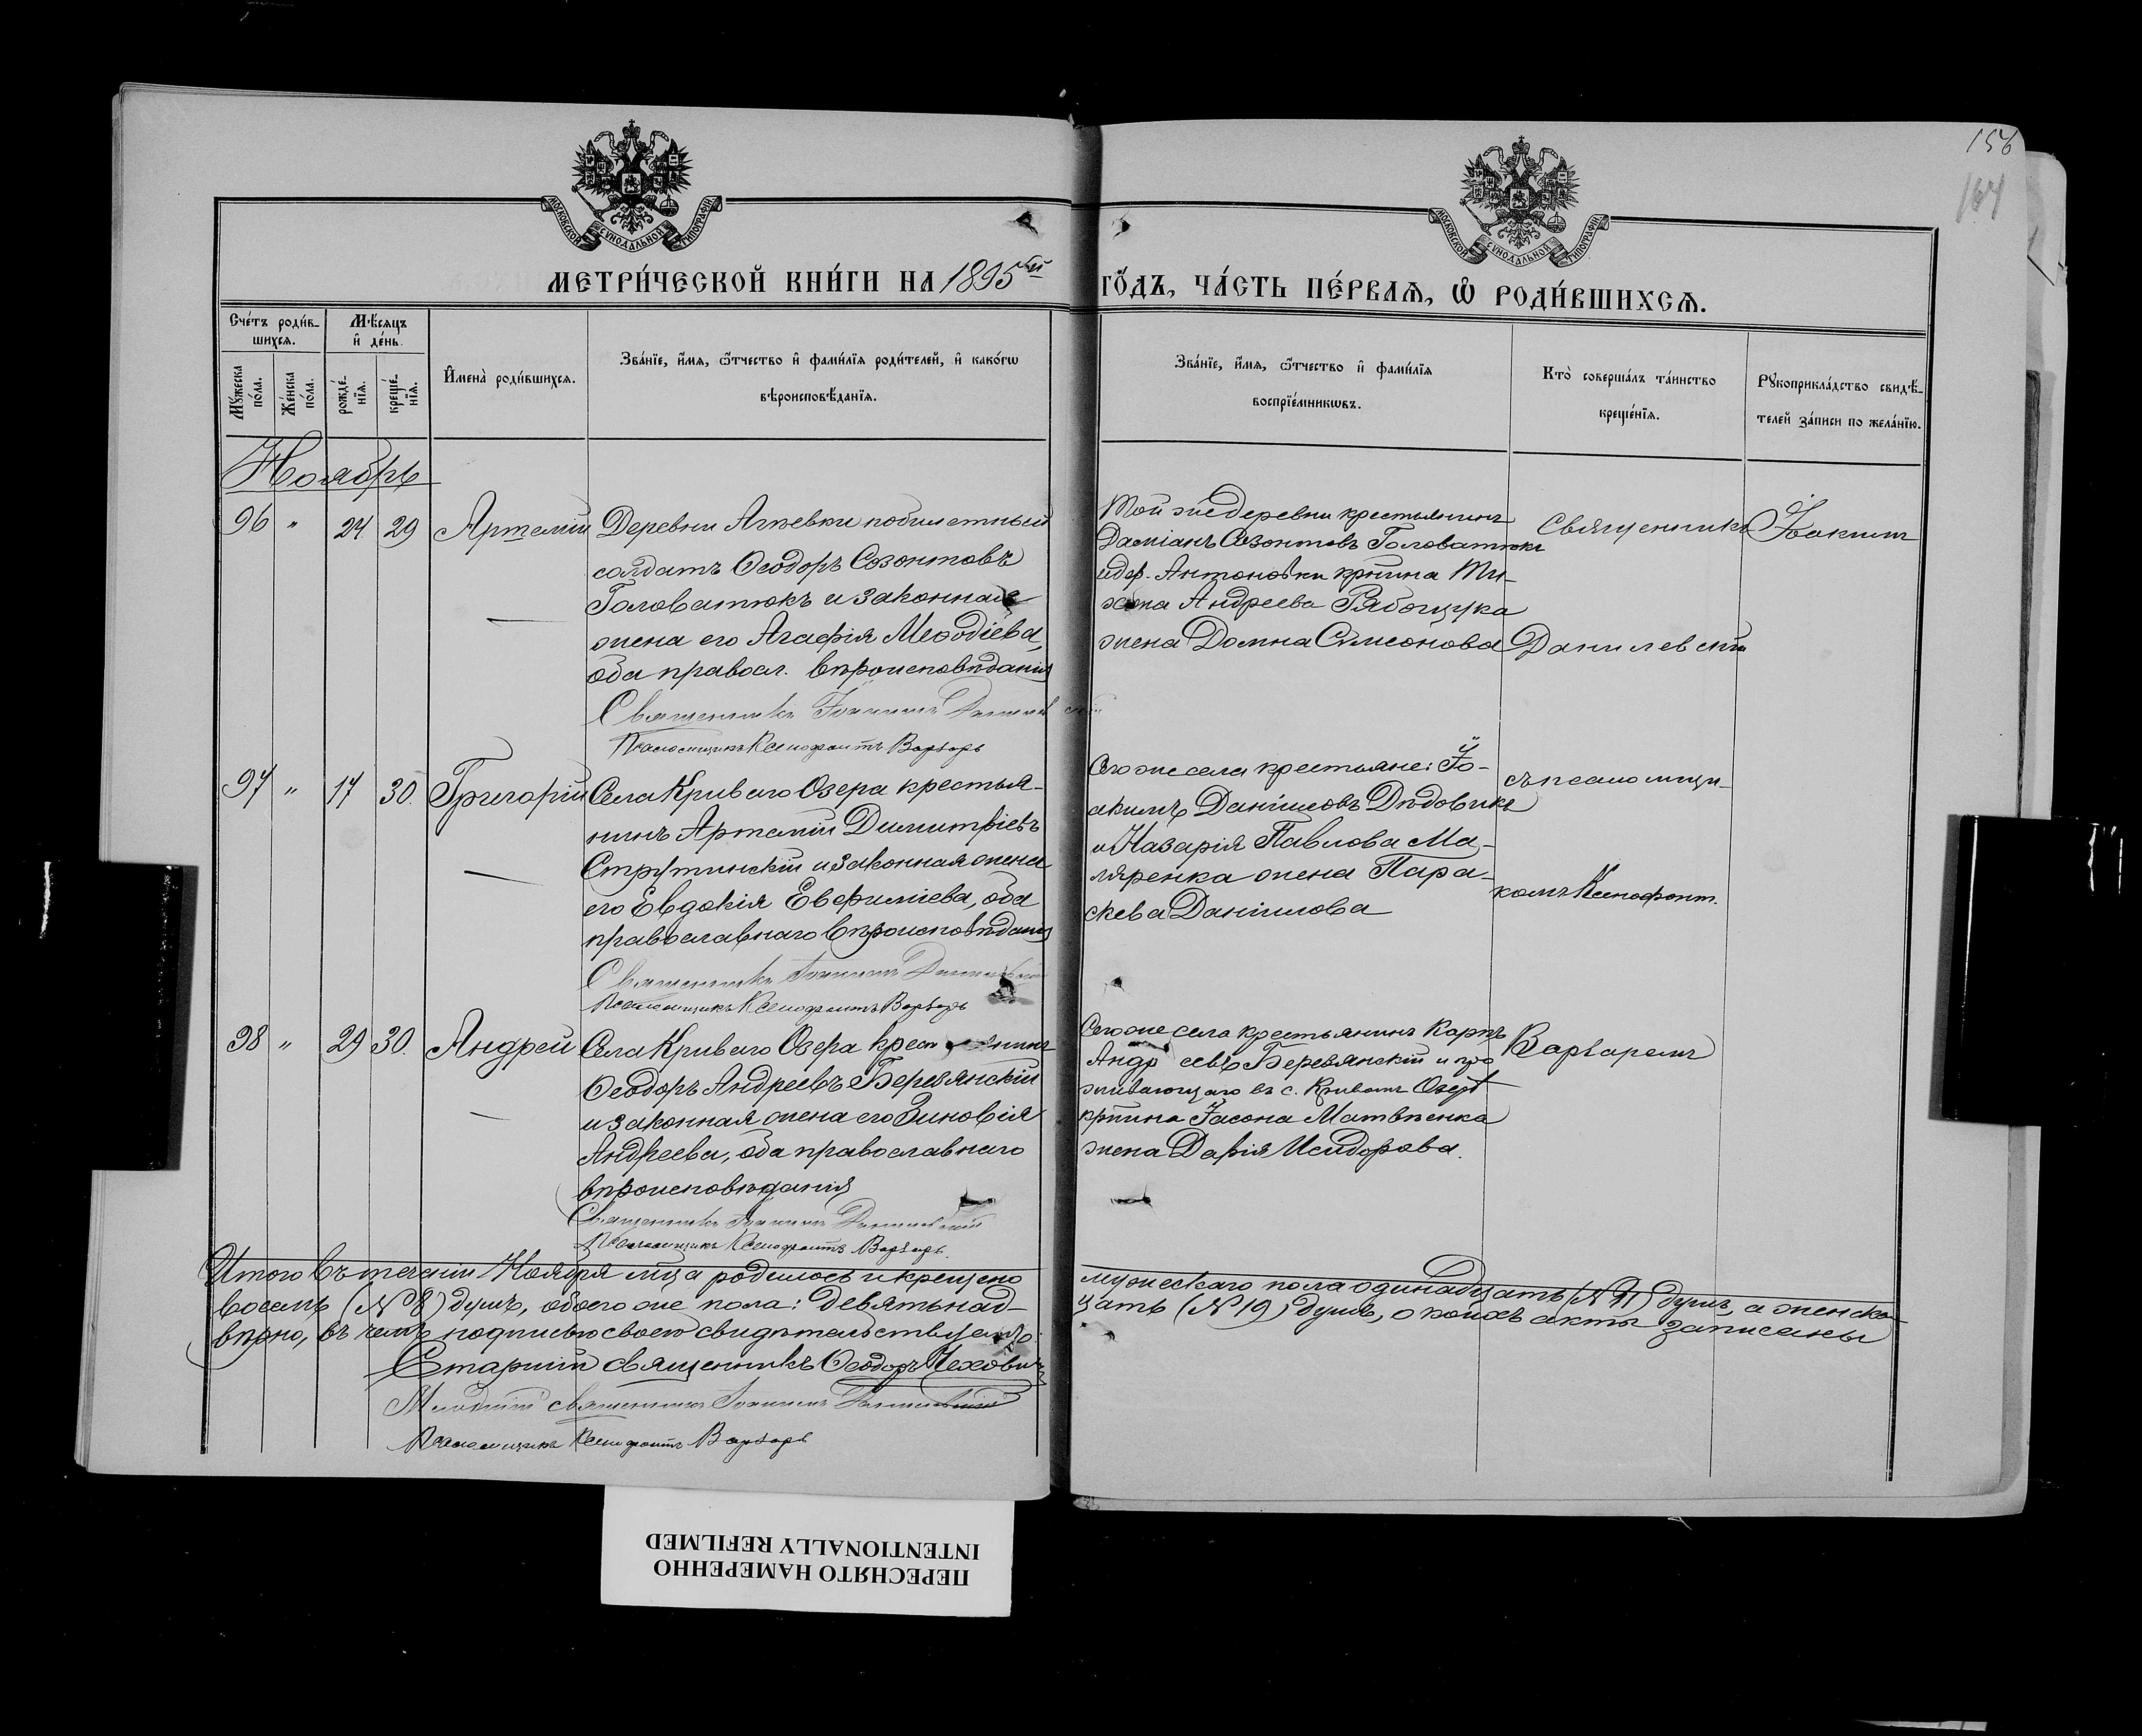 156
164
МОСКОВСКОЙ СУНОДАЛЬНОЙ ТИПОГРАФІИ
МОСКОВСКОЙ СУНОДАЛЬНОЙ ТИПОГРАФІИ
МЕТРИ́ЧЕСКОЙ КНИ́ГИ НА 1895 ый
ГО́ДЪ, ЧА́СТЬ ПЕ́РВАѦ, Ѡ҆ РОДИ́ВШИХСѦ.
Сче́тъ роди́в-
шихсѧ.
Мꙋ́жеска по́ла.
Же́нска по́ла.
Мѣ́сѧцъ и҆ де́нь.
рожде́нїѧ.
креще́нїѧ.
И҆мена̀ роди́вшихсѧ.
Зва́нїе, и҆́мѧ, ѻ҆́тчество и҆ фами́лїѧ роди́телей, и҆ како́гѡ
вѣроисповѣ́данїѧ.
Зва́нїе, и҆́мѧ, ѻ҆́тчество и҆ фами́лїѧ
воспрїе́мникѡвъ.
Кто̀ соверша́лъ та́инство
креще́нїѧ.
Рꙋкоприкла́дство свидѣ́-
телей за́писи по жела́нїю.
Ноябрь
96 " 24 29 Артемій
Деревни Агѣевки побилетный
солдатъ Ѳеодоръ Созонтовъ
Головатюкъ и законная
жена его Агафія Меѳодіева,
оба правосл. вѣроисповѣданія
Священникъ Іоакимъ Данилевскій
Псаломщикъ Ксенофонтъ Варварь
Той же деревни крестьянинъ
Даміанъ Созонтовъ Головатюкъ
и дер. Антоновки крѣтина Ти-
хона Андреева Рябощука
жена Домна Симеонова
Священникъ Іоакимъ
Данилевскій
97 " 17 30. Григорій
Села Криваго Озера крестья-
нинъ Артемій Димитріевъ
Струтинскій и законная жена
его Евдокія Евфиміева, оба
православнаго вѣроисповѣданія
Священникъ Іоакимъ Данилевскій
Псаломщикъ Ксенофонтъ Варварь
Сего же села крестьяне: Іо-
акимъ Даніиловъ Дѣдовикъ
и Назарія Павлова Ма-
ляренка жена Пара-
скева Даніилова
съ псаломщи-
комъ Ксенофонт.
98 " 29 30. Андрей
Села Криваго Озера крестьянинъ
Ѳеодоръ Андреевъ Березянскій
и законная жена его Зиновія
Андреева, оба православнаго
вѣроисповѣданія
Священникъ Іоакимъ Данилевскій
Псаломщикъ Ксенофонтъ Варварь.
Сего же села крестьянинъ Карпъ
Андреевъ Березянскій и про
живающаго въ с. Кривомъ Озерѣ
крѣтина Іасона Матвѣенка
жена Дарія Исидорова.
Варваремъ
Итого въ теченіи Ноября мѣца родилось и крещено мужескаго пола одинадцать (№ 11) душъ, а женска-
восемь (№ 8) душъ, обоего же пола: девятьнад-цать (№ 19) душъ, о коихъ акты записаны
вѣрно, въ чемъ подписью своею свидѣтельствуемъ:
Старшій священникъ Ѳеодоръ Чеховичъ
Младшій священникъ Іоакимъ Данилевскій
Псаломщикъ Ксенофонтъ Варварь
ПЕРЕСНЯТО НАМЕРЕННО
INTENTIONALLY REFILMED